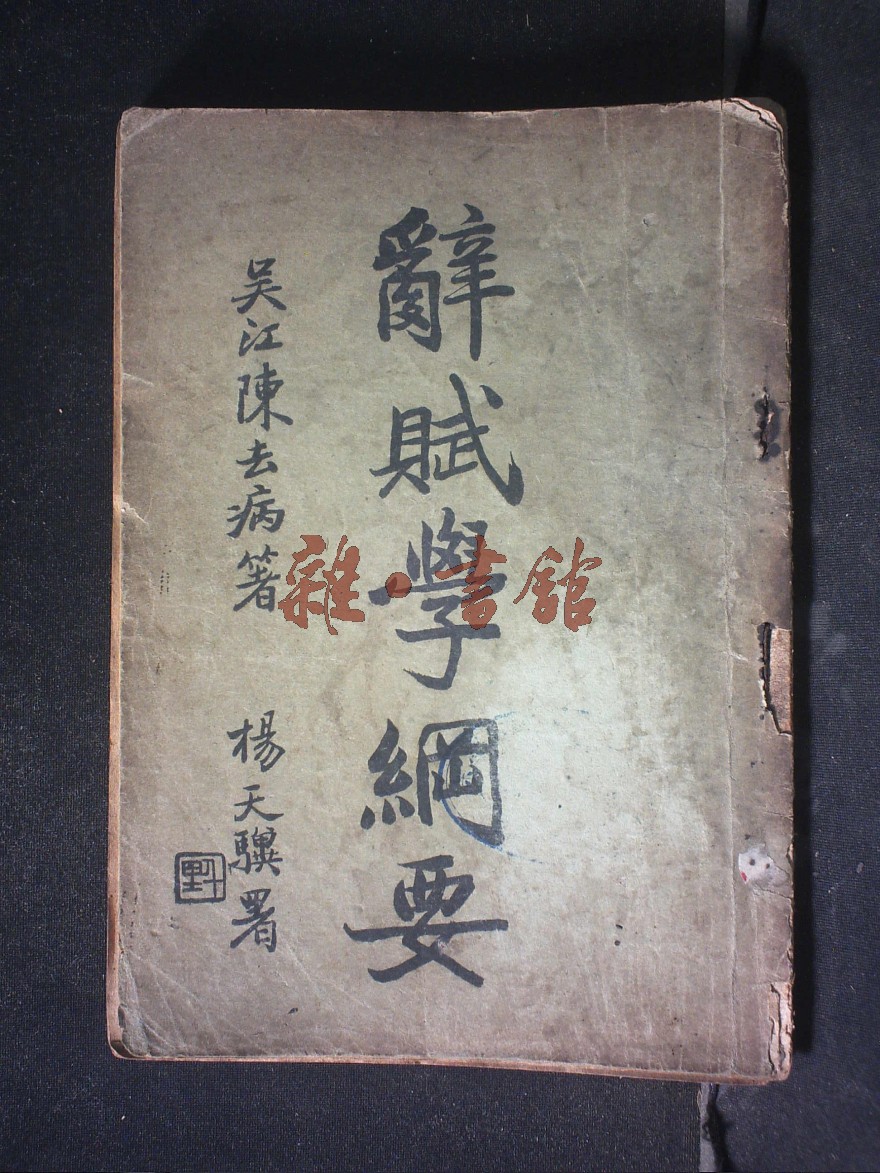 辭賦學綱要
吴江陳去病箸
楊天驥署
雜·書館